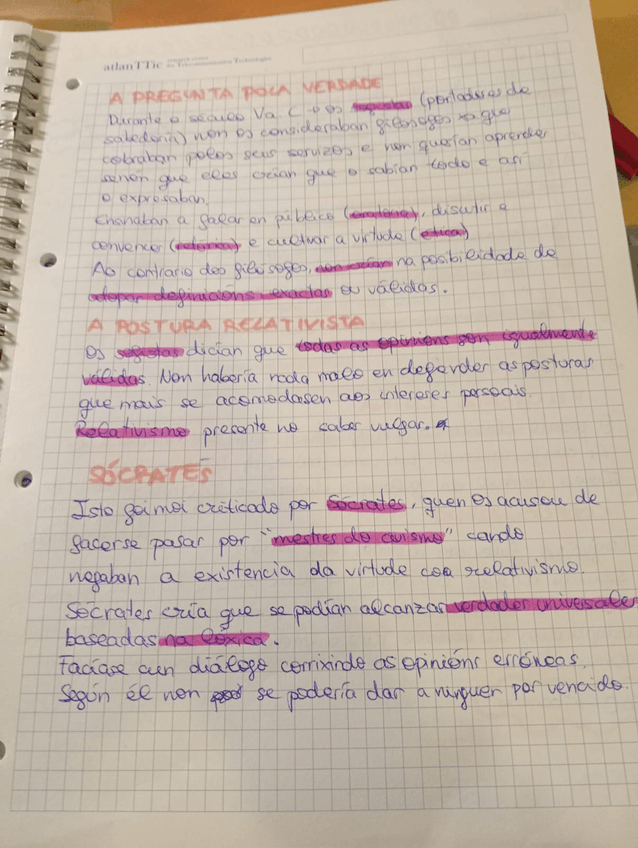 atlanTTic
A PREGUNTA POLA VERDADE
Durante o século V a.C os sofistas (portadores de
sabedoría) non os consideraban filósofos xa que
cobraban polos seus servizos e non querían aprender
senón que eles crían que o sabían todo e así
o expresaban.
Enseñaban a falar en público (oratoria), discutir e
convencer (retórica) e cultivar a virtude (ética)
Ao contrario dos filósofos, non crían na posibilidade de
adoptar definicións exactas ou válidas.
A POSTURA RELATIVISTA
Os sofistas dicían que todas as opinións son igualmente
válidas. Non habería nada malo en defender as posturas
que mais se acomodasen aos intereses persoais.
Relativismo presente no saber vulgar.
SÓCRATES
Isto foi moi criticado por Sócrates, quen os acusou de
facerse pasar por "mestres do civismo" cando
negaban a existencia da virtude coa relativismo.
Sócrates cría que se podían alcanzar verdades universales
baseadas na lóxica.
Facíase cun diálogo corrixindo as opinións erróneas.
Según él non se podería dar a ninguen por vencido.